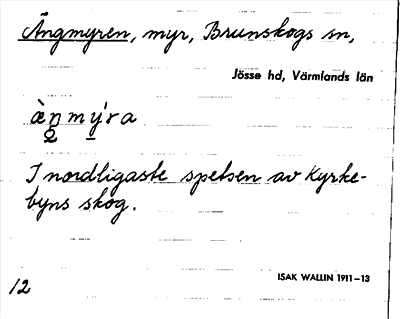 Ängmyren, myr, Brunskogs sn,
Jösse hd, Värmlands län
æ̀n̥mýra
I nordligaste spetsen av Kyrke-
byns skog.
ISAK WALLIN 1911–13
12